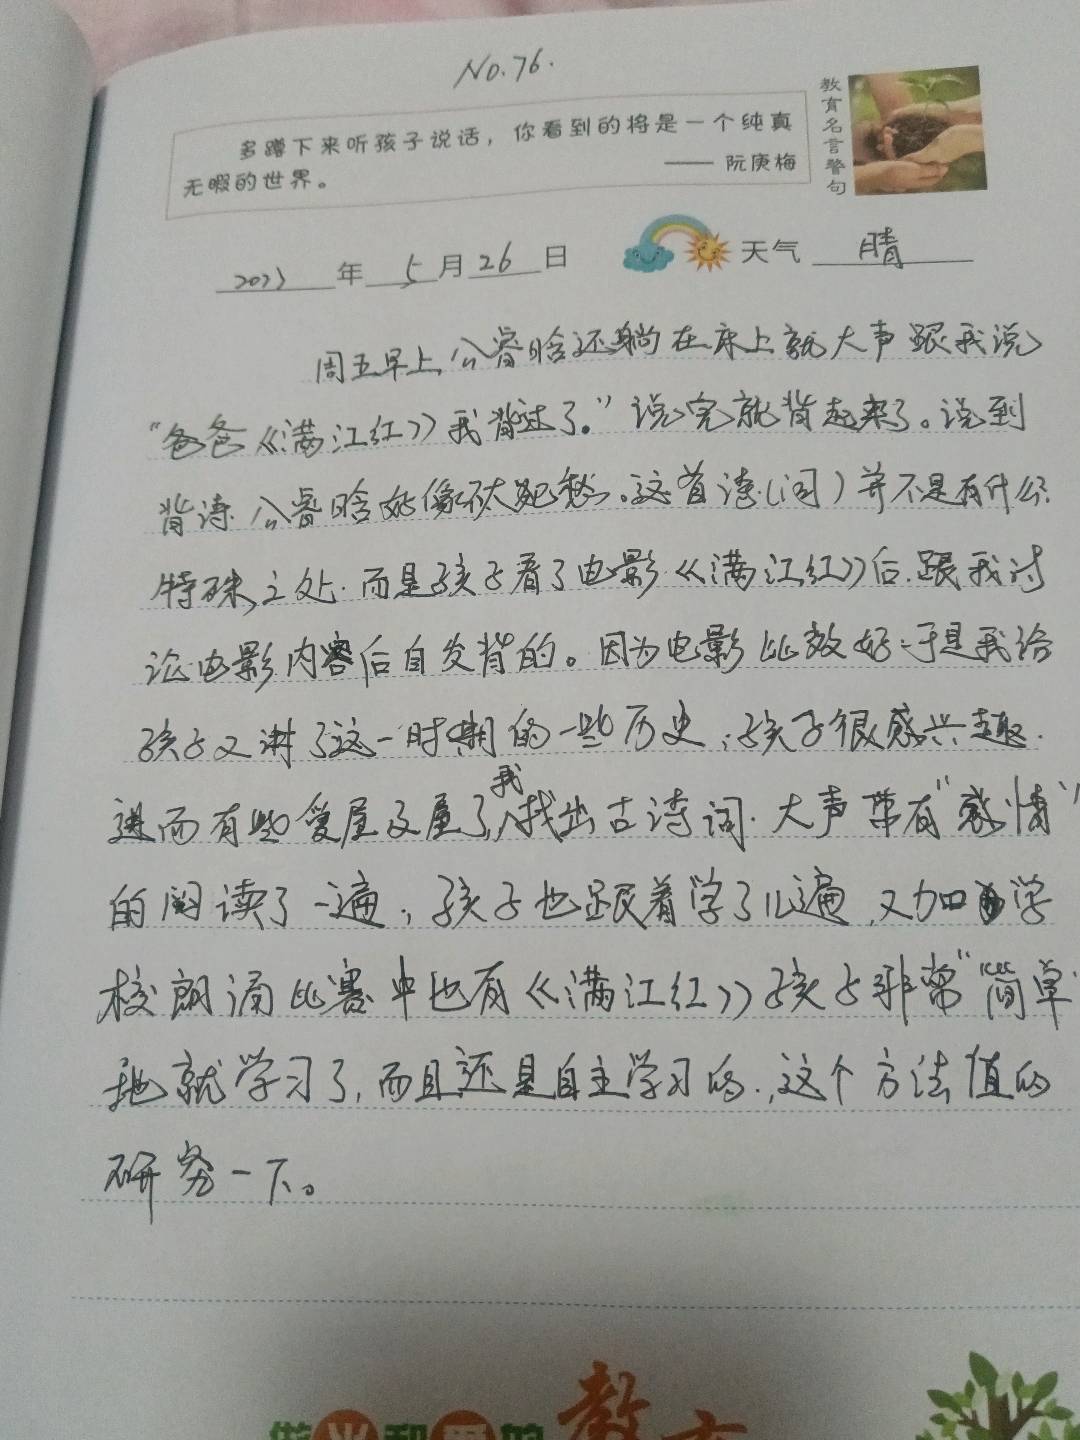 No.76.
多蹲下来听孩子说话，你看到的将是一个纯真
无暇的世界。
—— 阮庚梅
教育名言警句
2023年5月26日 天气 晴
周五早上,公睿晗还躺在床上就大声跟我说
“爸爸《满江红》我背过了。”说完就背起来了。说到
背诗.公睿晗好像不太犯愁。这首诗(词)并不是有什么
特殊之处.而是孩子看了电影《满江红》后.跟我讨
论电影内容后自发背的。因为电影比效好;于是我给
孩子又讲了这一时期的一些历史;孩子很感兴趣.
进而有些爱屋及屋了,我找出古诗词.大声带有“感情”
的阅读了一遍;孩子也跟着学了几遍,又加 学
校朗诵比赛中也有《满江红》孩子非常“简单”
地就学习了,而且还是自主学习的.,这个方法值的
研究一下。
做 和 的教育